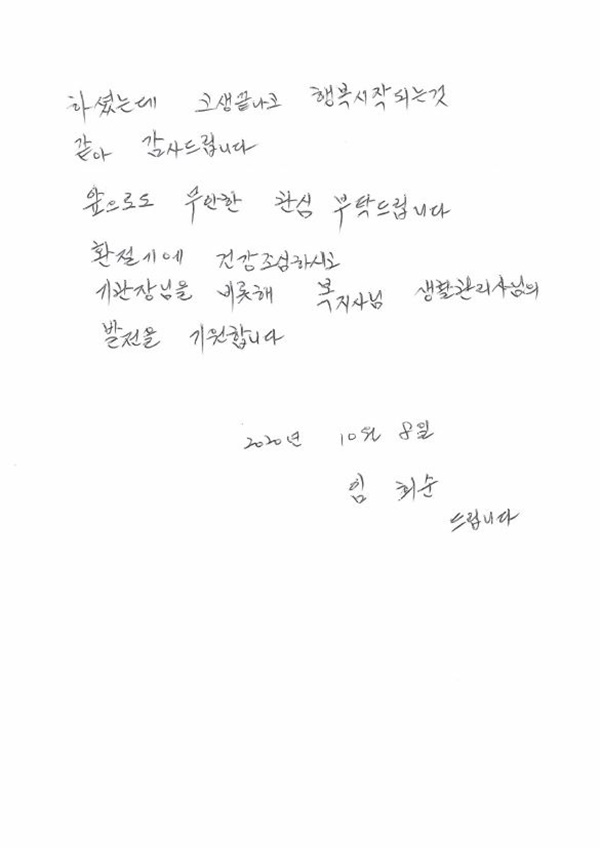 하셨는데 고생끝나고 행복시작되는것
같아 감사드립니다
앞으로도 무안한 관심 부탁드립니다
환절기에 건강조심하시고
기관장님을 비롯해 복지사님 생활관리사님의
발전을 기원합니다
2020년 10월 8일
임 희순
드립니다